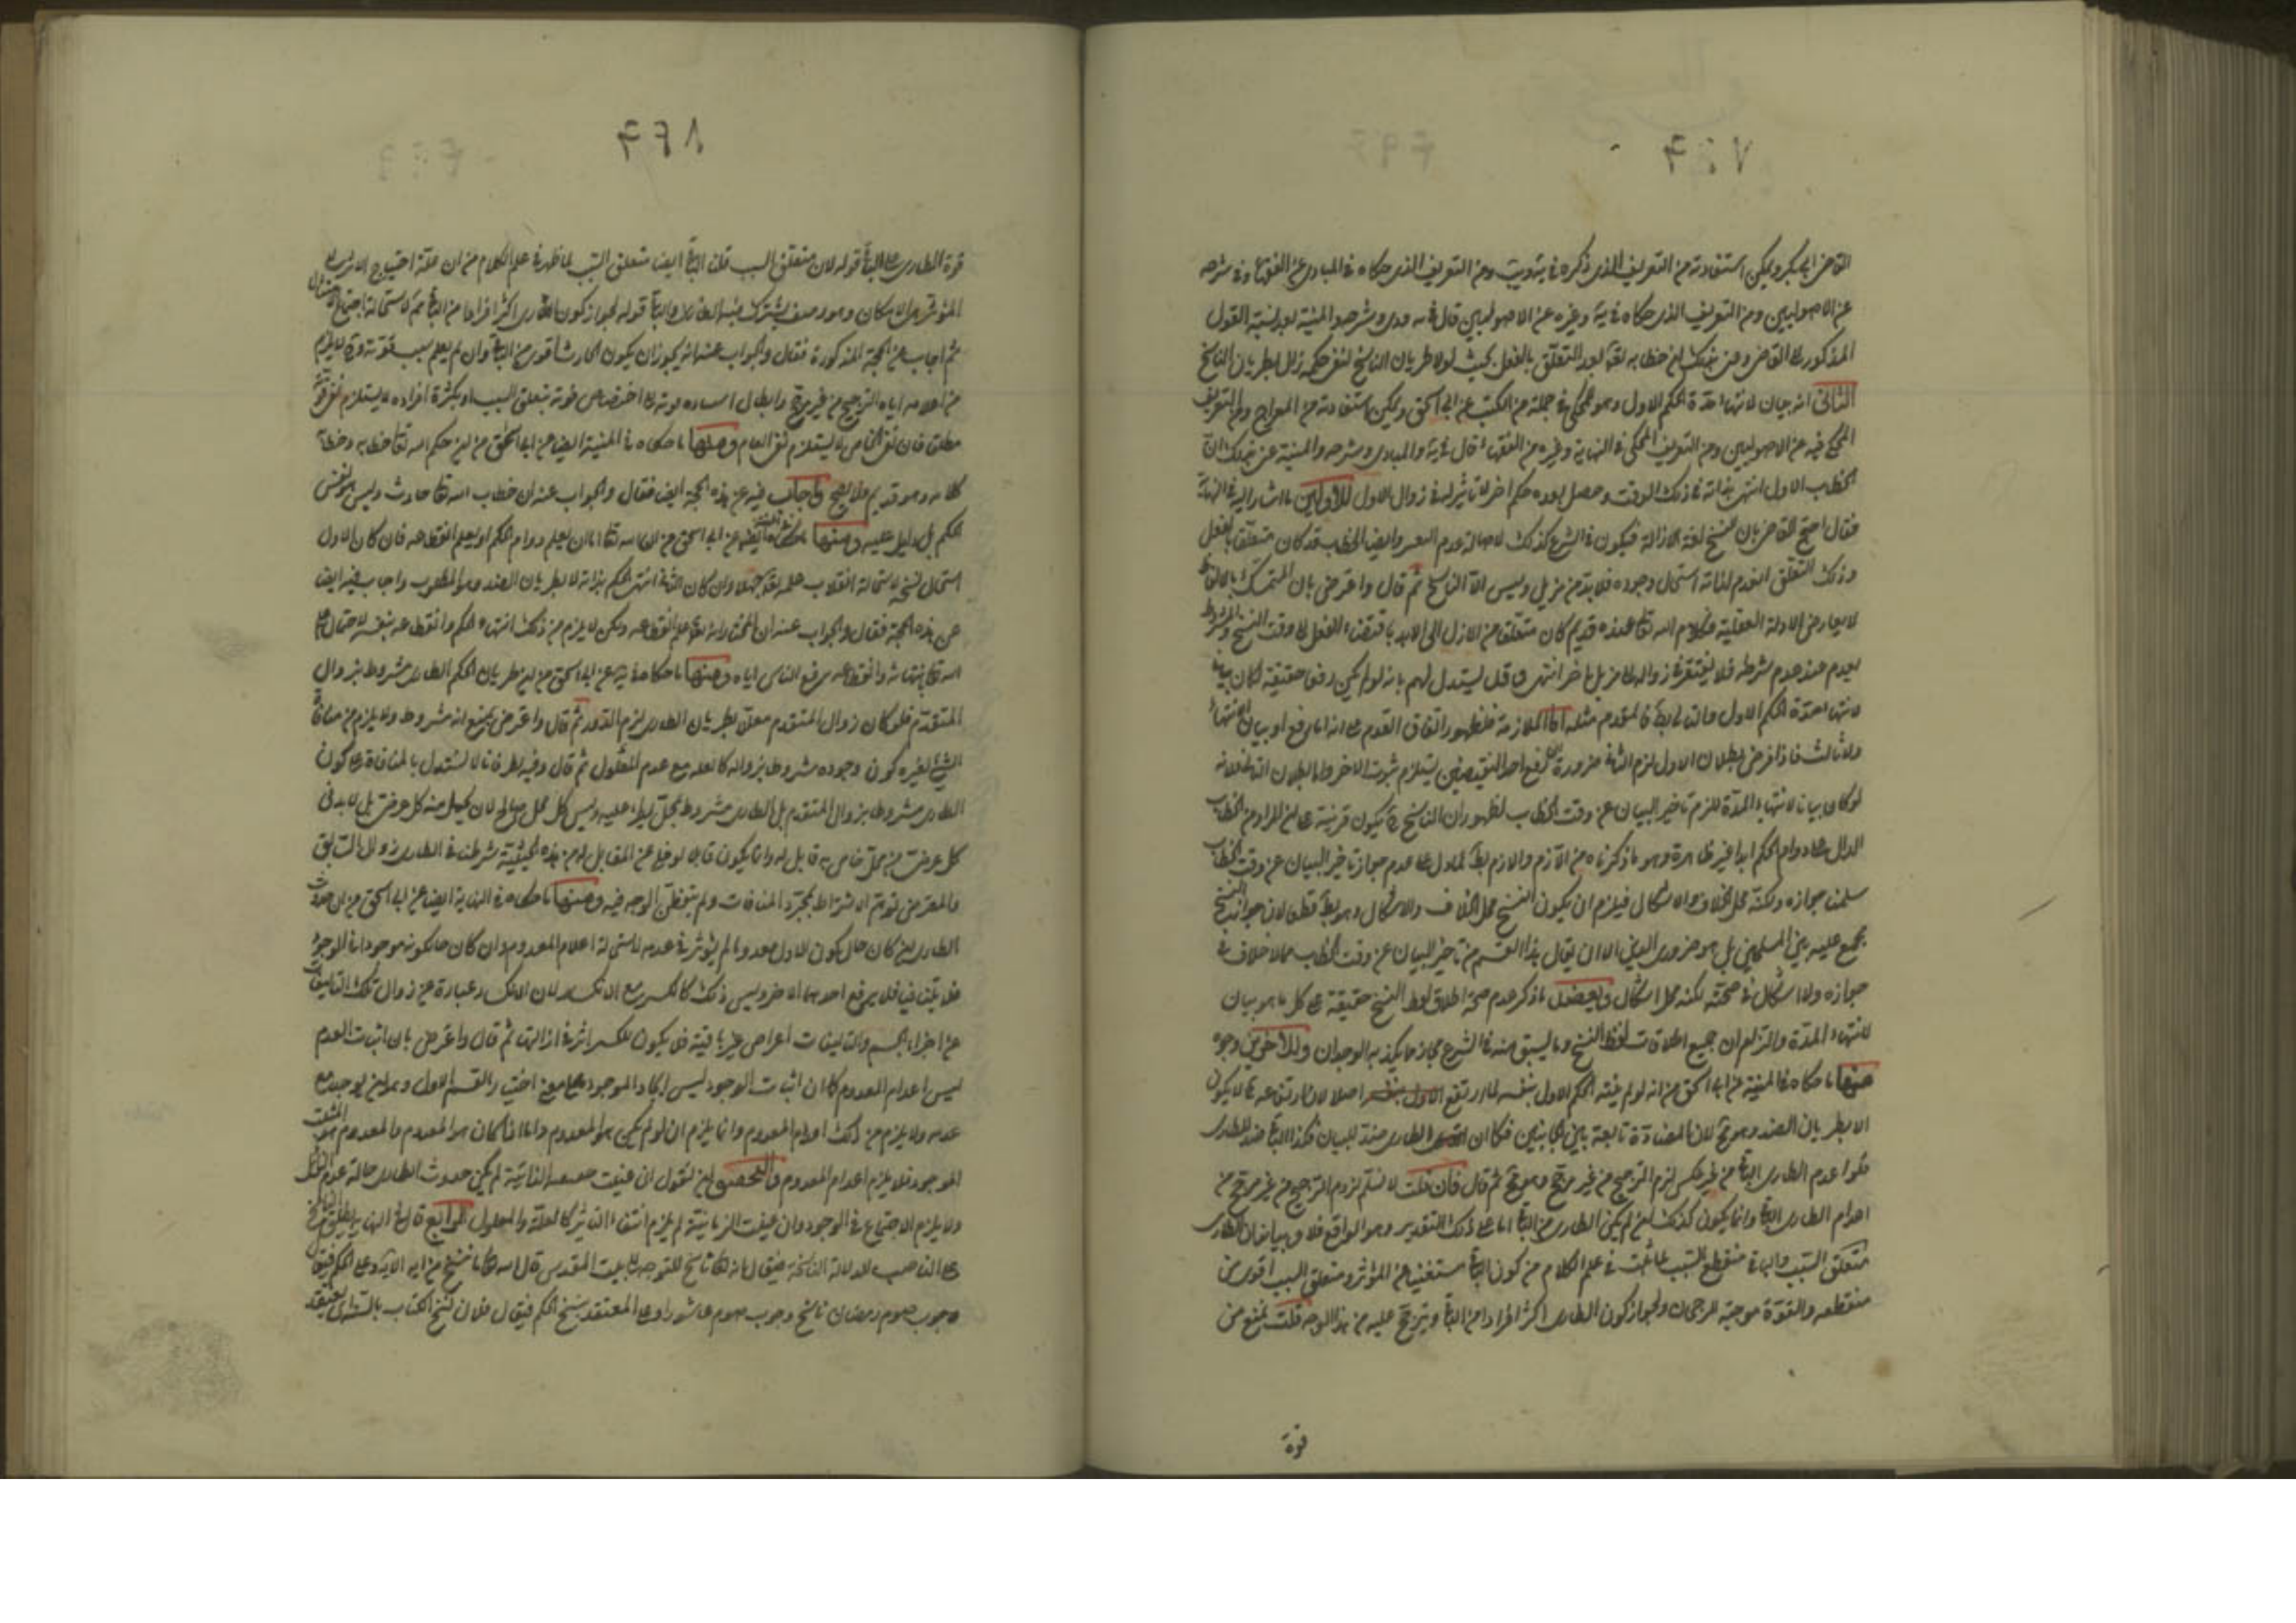 القاضى ابى بكر ويمكن استفادته من التعريف الذى ذكره فى يه ومن التعريف الذى حكاه فى المبادى عن الفقهاء وفى شرحه
عن الاصوليين ومن التعريف الذى حكاه فى يه وغيره عن الاصوليين قال فى يه ودى وشرحه والمنية بعد نسبة القول
المذكور الى القاضى ان خطابه تعالى بعد التعلق بالفعل بحيث لولا طريان الناسخ لبقى حكمه زال بطريان الناسخ
الثانى انه بيان لانتهاء مدة الحكم الاول وهو المحكى فى جملة من الكتب عن ابى اسحق ويمكن استفادته من المعراج ومن التعريف
المحكى فيه عن الاصوليين ومن التعريف المحكى فى النهاية وغيره من الفقهاء قال فى يه والمبادى وشرحه والمنية
الخطاب الاول انتهى بذاته فى ذلك الوقت وحصل بعده حكم اخر لا تاثير له فى زوال الاول للاولين ما اشار اليه فى النهاية
فقال احتج القاضى بان النسخ لغة الازالة فيكون فى الشرع كذلك لاصالة عدم التغيير وايضا الخطاب قد كان متعلقا بالفعل
وذلك التعلق القديم لذاته استحال وجوده فلا بد من مزيل وليس الا الناسخ ثم قال واعترض بان التمسك بالالفاظ
لا يعارض الادلة العقلية وكلام الله تعالى عنده قديم كان متعلقا من الازل الى الابد باقتضاء الفعل الى وقت النسخ والمشروط
يعدم عند عدم شرطه فلا يفتقر فى زواله الى مزيل اخر انتهى وقد يستدل لهم بانه لو لم يكن رفعا حقيقة لكان بيانا
لانتهاء مدة الحكم الاول والتالى بط فالمقدم مثله اما الملازمة فلظهور اتفاق القوم على انه اما رفع او بيان لانتهاء
ولا ثالث فاذا فرض بطلان الاول لزم الثانى ضرورة ان رفع احد النقيضين يستلزم ثبوت الاخر واما بطلان التالى فلانه
لو كان بيانا لانتهاء المدة للزم تاخير البيان عن وقت الخطاب لظهور ان الناسخ ح يكون قرينة على المراد من الخطاب
الدال على دوام الحكم ابدا غير ظاهره وهو ما ذكرناه من اللازم واللازم بط لما دل على عدم جواز تاخير البيان عن وقت الخطاب
سلمنا جوازه ولكنه محل الخلاف والاشكال فيلزم ان يكون النسخ محل الخلاف والاشكال وهو بط قطعا لان جواز النسخ
مجمع عليه بين المسلمين بل هو ضرورى الدين الا ان يقال هذا القسم من تاخير البيان عن وقت الخطاب مما لا خلاف فى
جوازه ولا اشكال فى صحته لكنه محل اشكال ويعضد ما ذكر عدم صحة اطلاق لفظ النسخ حقيقة على كل ما هو بيان
لانتهاء المدة والتزام ان جميع اطلاقات لفظ النسخ وما يسبق منه فى الشرع مجاز مما يكذبه الوجدان وللآخرين وجوه
منها ما حكاه فى المنية عن ابى اسحق من انه لو لم ينته الحكم الاول بنفسه لما ارتفع اصلا لان ارتفاعه ح لا يكون
الا بطريان الضد وهو مح لان المضادة ثابتة بين الجانبين فكما ان الطارى ضد للباقى فكذا الباقى ضد للطارى
فلو اعدم الطارى الباقى من غير عكس لزم الترجيح من غير مرجح وهو مح ثم قال فان قلت لا نسلم لزوم الترجيح من غير مرجح من
اعدام الطارى الباقى وانما يكون كذلك لو لم يكن الطارى اقوى من الباقى اما على ذلك التقدير وهو الواقع فلا وبيانه ان الطارى
متعلق السبب والباقى منقطع السبب لما ثبت فى علم الكلام من كون الباقى مستغنيا عن المؤثر ومتعلق السبب اقوى من
منقطعه والقوة موجبة للرجحان ولجواز كون الطارى اكثر افرادا من الباقى ويترجح عليه من هذا الوجه قلت نمنع من
قوة
قوة الطارى على الباقى قوله لان متعلق السبب قلنا الباقى ايضا متعلق السبب لما ظهر فى علم الكلام من ان علة احتياج الاثر الى
المؤثر هى الامكان وهو وصف يشترك فيه الطارى والباقى قوله لجواز كون الطارى اكثر افرادا من الباقى مم لاستحالة اجتماع
ثم اجاب عن الحجة المذكورة فقال والجواب عنه انه يجوز ان يكون الحادث اقوى من الباقى وان لم يعلم سبب قوته
من اعدامه اياه الترجيح من غير مرجح وابطال اختصاص قوته بتعلق السبب او بكثرة افراده لا يستلزم نفى قوته
مطلقا فان نفى الخاص لا يستلزم نفى العام ومنها ما حكاه فى المنية ايضا عن ابى اسحق من ان حكم الله تعالى خطابه وخطابه
كلامه وهو قديم فلا يصح واجاب فيه عن هذه الحجة ايضا فقال والجواب عنه ان خطاب الله تعالى حادث وليس هو نفس
الحكم بل دليل عليه ومنها ما حكاه ايضا عن ابى اسحق من ان الله تعالى اما ان يعلم دوام الحكم او يعلم انقطاعه فان كان الاول
استحال نسخه لاستحالة انقلاب علمه تعالى جهلا وان كان الثانى انتهى الحكم بذاته لا بطريان الضد وهو المطلوب واجاب فيه ايضا
عن هذه الحجة فقال والجواب عنه ان المختار انه تعالى علم انقطاعه ولكن لا يلزم من ذلك انتهاء الحكم وانقطاعه بنفسه لاحتمال علم
الله تعالى بانتهائه وانقطاعه برفع الناسخ اياه ومنها ما حكاه فى يه عن ابى اسحق من ان طريان الحكم الطارى مشروط بزوال
المتقدم فلو كان زوال المتقدم معللا بطريان الطارى لزم الدور ثم قال واعترض بمنع انه مشروط ولا يلزم من منافاة
الشئ لغيره كون وجوده مشروطا بزواله كالعلة مع عدم المعلول ثم قال وفيه نظر فانا لا نستدل بالمنافاة على كون
الطارى مشروطا بزوال المتقدم بل الطارى مشروط بمحل يطرء عليه وليس كل محل صالح لان يحل منه كل عرض بل لا بد فى
كل عرض من محل خاص به قابل له وانما يكون قابلا لو خلا عن المقابل له ومن هذه الحيثية شرطنا فى الطارى زوال السابق
والمعترض توهم الاشتراط بمجرد المنافات ولم يتفطن الوجه فيه ومنها ما حكاه فى النهاية ايضا عن ابى اسحق من ان حدوث
الطارى ان كان حال كون الاول معدوما لم يؤثر فى عدمه لاستحالة اعدام المعدوم وان كان حال كونه موجودا فى الوجود
فلا يتنافيا فلا يرفع احدهما الاخر وليس ذلك كالكسر مع الانكسار لان الانكسار عبارة عن زوال تلك التاليفات
عن اجزاء الجسم والتاليفات اعراض غير باقية فلا يكون للكسر اثر فى ازالتها ثم قال واعترض بان اثبات العدم
ليس اعدام المعدوم كما ان اثبات الوجود ليس ايجاد الموجود اختيار القسم الاول وهو ان يوجد مع
عدمه ولا يلزم من ذلك اعدام المعدوم وانما يلزم ان لو لم يكن هو المعدوم واما اذا كان هو المعدوم والمعدوم هو المثبت
الموجود فلا يلزم اعدام المعدوم والتحقيق ان نقول ان عنيت معية الذاتية لم يكن حدوث الطارى حالة عدم
ولا يلزم الاجتماع فى الوجود وان عنيت الزمانية لم يلزم انتفاء التاثير كالعلة والمعلول الرابع قال فى النهاية يطلق الناسخ
على الناصب للدلالة الناسخة فيقال انه تعالى ناسخ للتوجه الى بيت المقدس قال الله تعالى ما ننسخ من اية الاية وعلى الحكم فيقال
وجوب صوم رمضان ناسخ وجوب صوم عاشورا وعلى المعتقد بنسخ الحكم فيقال فلان نسخ الكتاب بالسنة اى يعتقد